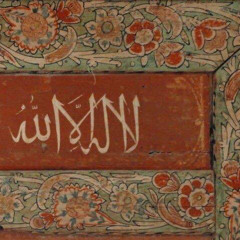 لا اله الا الله